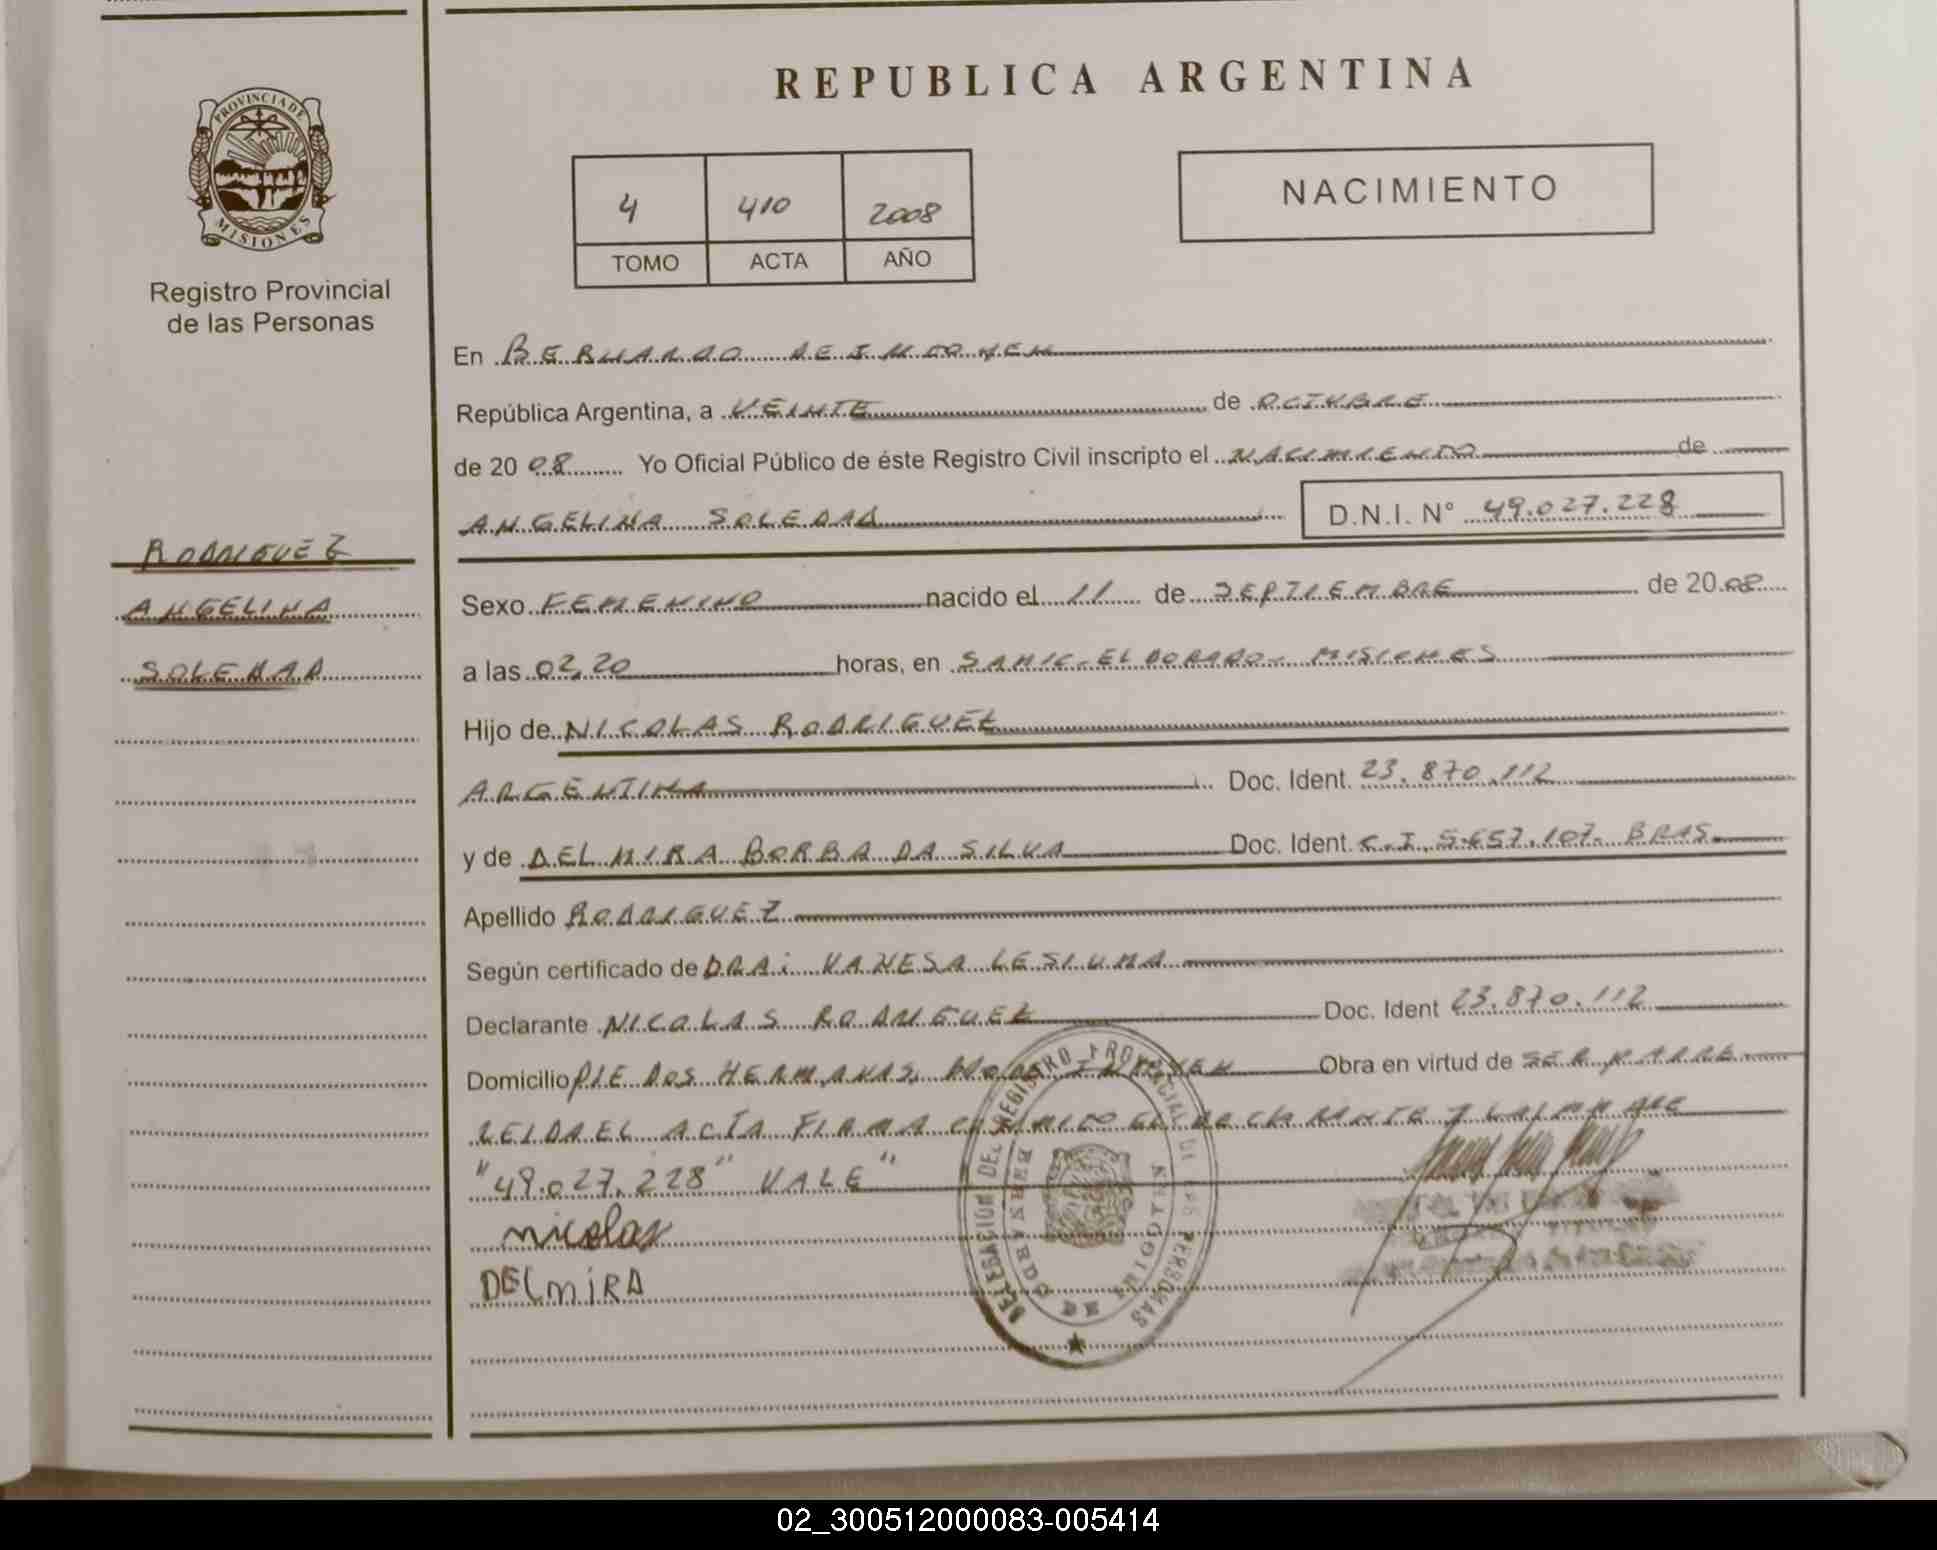 REPUBLICA ARGENTINA
PROVINCIA DE
MISIONES
Registro Provincial
de las Personas
4 410 2008
TOMO ACTA AÑO
NACIMIENTO
En BERNARDO DE IRIGOYEN
República Argentina, a VEINTE de OCTUBRE
de 2008 Yo Oficial Público de éste Registro Civil inscripto el NACIMIENTO de
ANGELINA SOLEDAD D.N.I. N° 49.027.228
RODRIGUEZ
ANGELINA
SOLEDAD
Sexo FEMENINO nacido el 11 de SEPTIEMBRE de 2008
a las 02,20 horas, en SAMIC-ELDORADO- MISIONES
Hijo de NICOLAS RODRIGUEZ
ARGENTINA Doc. Ident. 23.870.112
y de DELMIRA BORBA DA SILVA Doc. Ident. C.I. 5.657.107. BRAS.
Apellido RODRIGUEZ
Según certificado de DRA: VANESA
Declarante NICOLAS RODRIGUEZ Doc. Ident 23.870.112
Domicilio PJE DOS HERMANAS, Obra en virtud de SER PADRE
LEIDA EL ACTA FIRMA CONMIGO EL DECLARANTE Y LA MADRE
"49.027.228" VALE"
nicolas
DELMIRA
DELEGACIÓN DEL REGISTRO PROVINCIAL DE LAS PERSONAS
BERNARDO DE IRIGOYEN
02_300512000083-005414